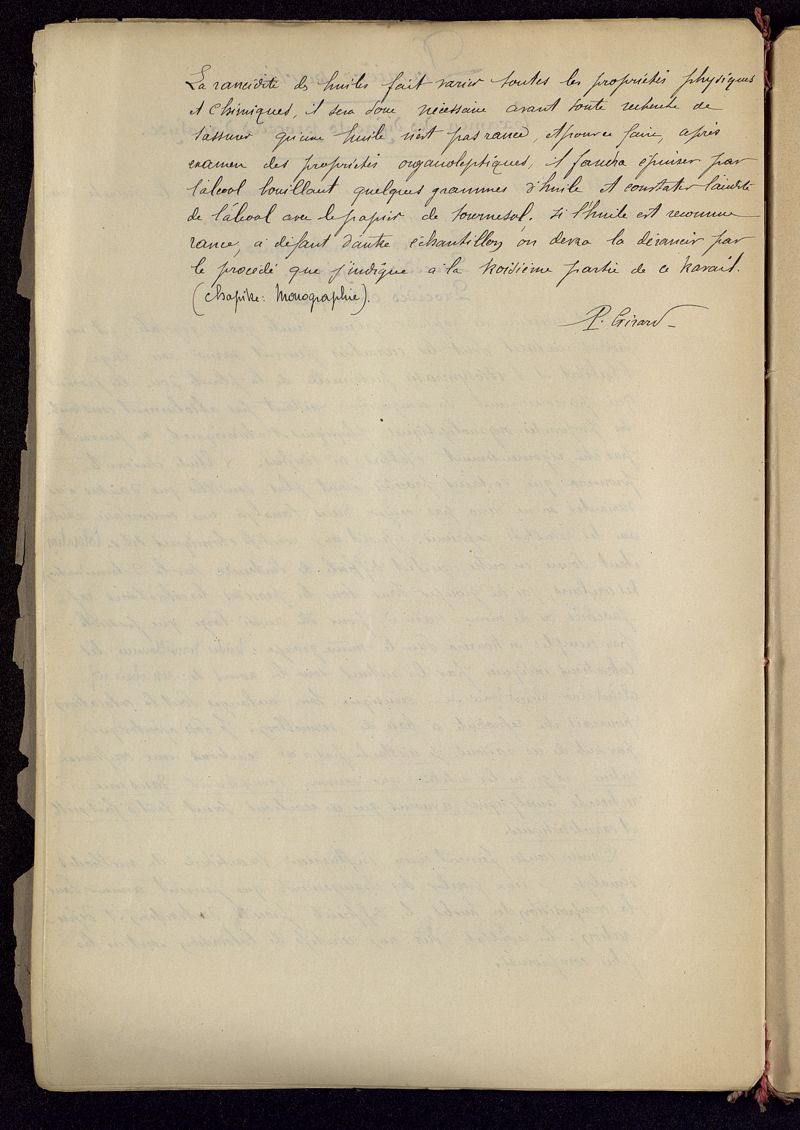 La rancidité des huiles fait varier toutes les propriétés physiques
et chimiques, il sera donc nécessaire avant toute recherche de
s'assurer qu'une huile n'est pas rance, et pour ce faire, après
examen des propriétés organoleptiques, il faudra épuiser par
l'alcool bouillant quelques grammes d'huile et constater l'acidité
de l'alcool avec le papier de tournesol. Si l'huile est reconnue
rance, à défaut d'autre échantillon, on devra la dérancir par
le procédé que j'indique à la troisième partie de ce travail.
(Chapitre: Monographie).
P. Girard